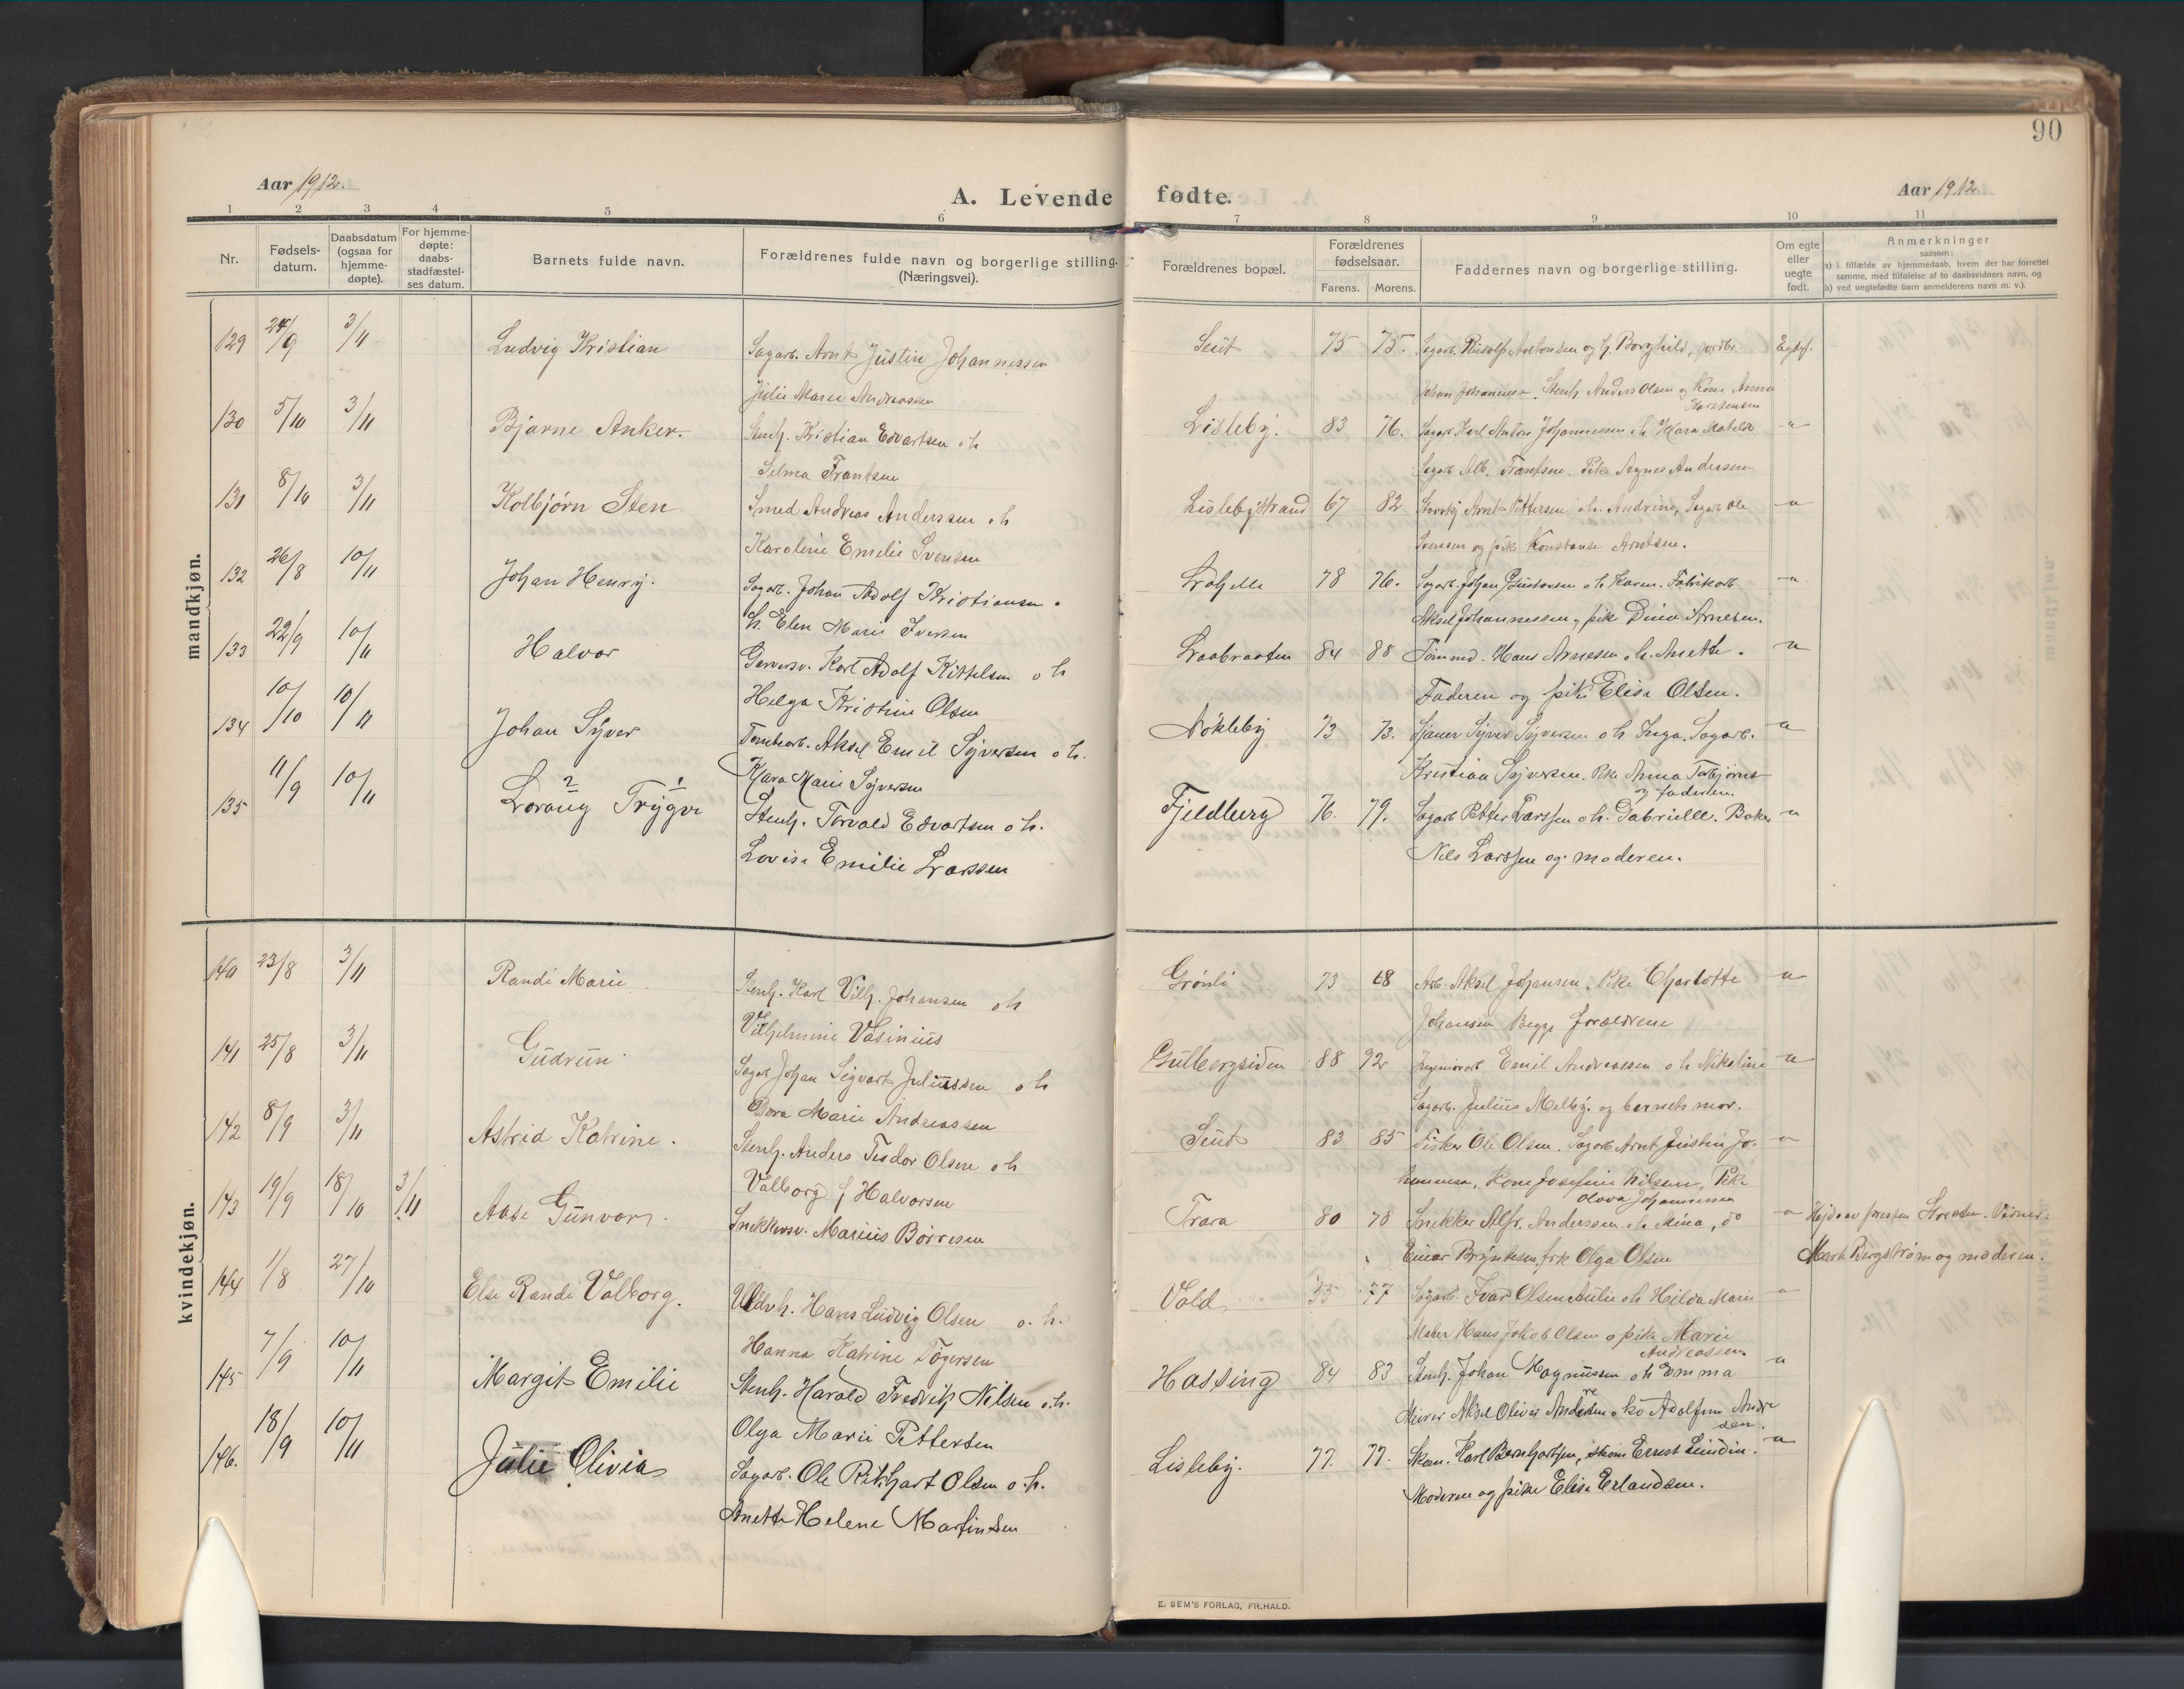 90
Aar 1912.
A. Levende fødte.
Aar 1912
1 2 3 4 5 6 7 8 9 10 11
Nr.
Fødsels-
datum.
Daabsdatum
(ogsaa for
hjemme-
døpte).
For hjemme-
døpte:
daabs-
stadfæstel-
ses datum.
Barnets fulde navn.
Forældrenes fulde navn og borgerlige stilling.
(Næringsvei).
Forældrenes bopæl.
Forældrenes
fødselsaar.
Farens. Morens.
Faddernes navn og borgerlige stilling.
Om egte
eller
uegte
født.
Anmerkninger
saasom:
a) i tilfælde av hjemmedaab, hvem der har forrettet
samme, med tilføielse af to daabsvidners navn, og
b) ved uegtefødte barn anmelderens navn m. v.).
mandkjøn.
129 24/9 3/11 Ludvig Kristian Sagarb. Arnt Justin Johannessen Seut 75 75. Sagarb. Rudolf Antonsen og h. Borghild, Egtef.
Julie Marie Andreassen Johan Johannessen, Stenh. Anders Olsen og Kone Anna
130 5/10 3/11 Bjarne Anker. Stenh. Kristian Edvartsen o h Lisleby. 83 76. Sagarb Karl Anton Johannessen o h Klara Matilde -"-
Selma Frantsen Sagarb Alb. Frantsen. Pike Agnes Andersen
131 8/10 3/11 Kolbjørn Sten Smed Andreas Anderssen o h Lislebystrand 67 82 Arnt Pettersen o h. Andrine, Sagarb Ole -"-
Karoline Emelie Svensen Svensen og pike Konstanse Arntsen.
132 26/8 10/11 Johan Henry. Sagarb. Johan Adolf Kristiansen o 78 76. Sagarb. Johan Gustavsen o h Karen. Fabrikarb -"-
h. Elen Marie Iversen Aksel Johannessen, pike Dina Arnesen.
133 22/9 10/11 Halvor Garversv. Karl Adolf Kittelsen o h Laabraaten 84 88 Tømmd. Hans Arnesen o h. Anette. -"-
Helga Kristine Olsen Faderen og pike Elise Olsen.
134 10/10 10/11 Johan Syver Tomtearb. Aksel Emil Syversen o h. Nøkleby 73 73. Syver Syversen o h Inga. Sagarb. -"-
Klara Marie Syversen Kristian Syversen. Pike Anna Torbjørns
og faderen.
135 11/9 10/11 2 Lorang 1 Trygve Stenh. Torvald Edvartsen o h. Fjeldberg 76. 79. Sagarb Petter Larssen o h. Gabrielle. Baker -"-
Lovise Emilie Larssen Nils Larssen og moderen.
kvindekjøn.
140 23/8 3/11 Randi Marie Stenh. Karl Vilh. Johansen o h Grønli 73 68 Arb. Aksel Johansen. Pike Charlotte -"-
Vilhelmine Vasinius Johansen Begge forældrene
141 25/8 3/11 Gudrun Sagarb Johan Sigvart Juliussen o h Gulbergsiden 88 92 Emil Andreassen o h Nikoline -"-
Dora Marie Andreassen Sagarb. Julius Melby. og barnets mor.
142 8/9 3/11 Astrid Katrine. Stenh. Anders Teodor Olsen o h Seut 83 85 Fisker Ole Olsen. Sagarb Arnt Justin Jo- -"-
Valborg Halvorsen hannessen, Kone Josefine Nilsen, Pike
Olava Johannessen
143 19/9 18/10 3/11 Aase Gunvor. Snekkersv. Marius Børresen Trara 80 78 Snekker Alfr. Anderssen o h Mina, do -"- Hjdøpt av Vidner:
Einar Bryntesen frk Olga Olsen Marta Bergstrøm og moderen.
144 1/8 27/10 Else Randi Valborg. Uldvh. Hans Ludvig Olsen o. h. Vold 55 77 Sagarb. Ivar Olsen o h Hilda Marie -"-
Hanna Katrine Togersen Maler Hans Jakob Olsen o pike Marie
Andreassen.
145 7/9 10/11 Margit Emilie Stenh. Harald Fredrik Nilsen o.h. Hassing 84 83 Stenh. Johan Magnussen o h Emma -"-
Olga Marie Pettersen Murer Aksel Oliver Andresen o ko Adolfine Andre
sen.
146. 18/9 10/11 Julie Olivia Sagarb. Ole Rikhart Olsen o.h. Lisleby. 77. 77. Skom. Karl Bernhartsen, skom Ernst Lundin. -"-
Anette Helene Martinsen Moderen og pike Elise Erlandsen.
E. SEM'S FORLAG, FR.HALD.